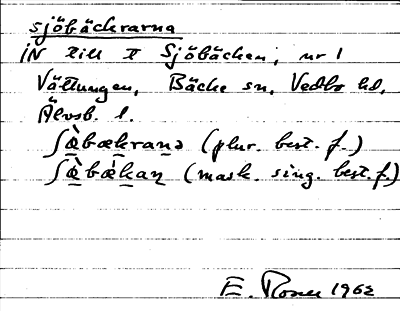 sjöbäckrarna
IN till tt Sjöbäcken, nr 1
Vättungen, Bäcke sn, Vedbo hd,
Älvsb. l.
ʃæ̀bækrana (plur. best. f.)
ʃæ̀bækan (mask. sing. best. f.)
E. Rosell 1962